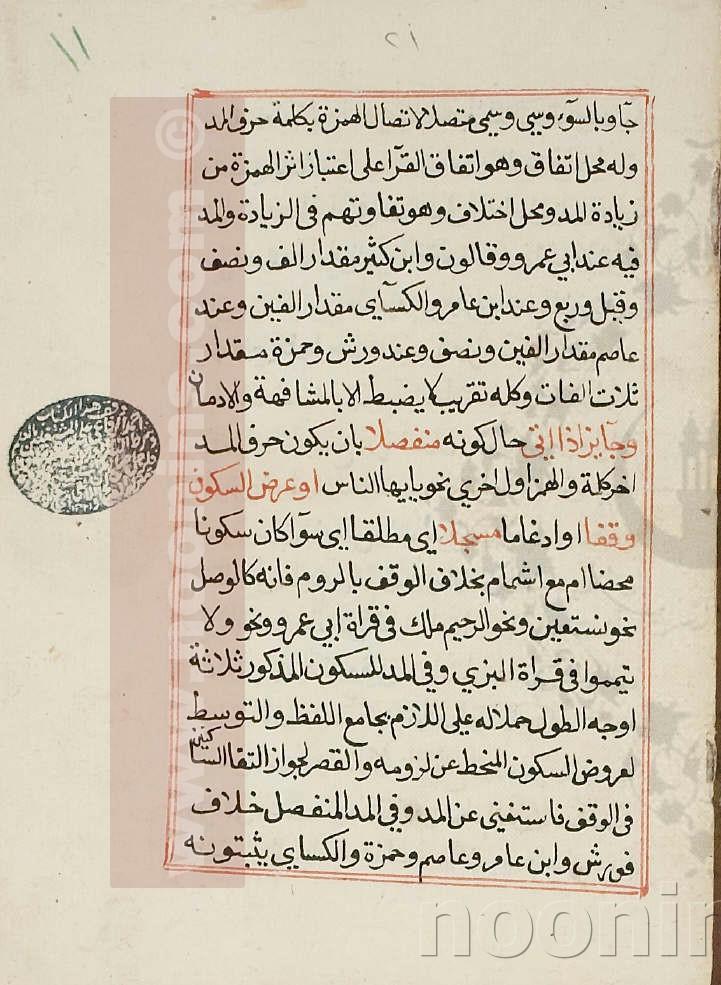 ٢١
١١
جآ وبالسوٓء وسيئ ويسمي متصلا لاتصال الهمزة بكلمة حرف المد
وله محل اتفاق وهو اتفاق القرآ على اعتبار اثر الهمزة من
زيادة المد ومحل اختلاف وهو تفاوتهم فى الزيادة والمد
فيه عند ابي عمرو وقالون وابن كثير مقدار الف ونصف
وقيل وربع وعند ابن عامر والكسآي مقدار الفين وعند
عاصم مقدار الفين ونصف وعند ورش وحمزة مقدار
ثلاث الفات وكله تقريب لا يضبط الا بالمشافهة والادمان
وجآيز اذا اتى حال كونه منفصلا بان يكون حرف المد
اخر كلمة والهمز اول اخري نحو يايها الناس او عرض السكون
وقفا او ادغاما مسجلا اي مطلقا اي سوآ كان سكونا
محضا ام مع اشمام بخلاف الوقف بالروم فانه كالوصل
نحو نستعين ونحو الرحيم ملك فى قراة ابي عمرو ونحو ولا
تيمموا فى قراة البزي وفي المد للسكون المذكور ثلاثة
اوجه الطول حملا له على اللازم بجامع اللفظ والتوسط
لعروض السكون المنحط عن لزومه والقصر لجواز التقا الساكنين
فى الوقف فاستغنى عن المد وفي المد المنفصل خلاف
فورش وابن عامر وعاصم وحمزة والكساي يثبتونه
noonin